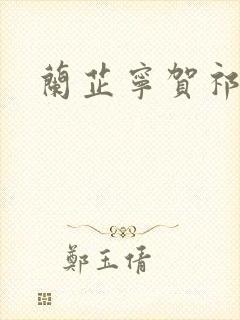 蘭芷寧賀祁
鄭玉倩